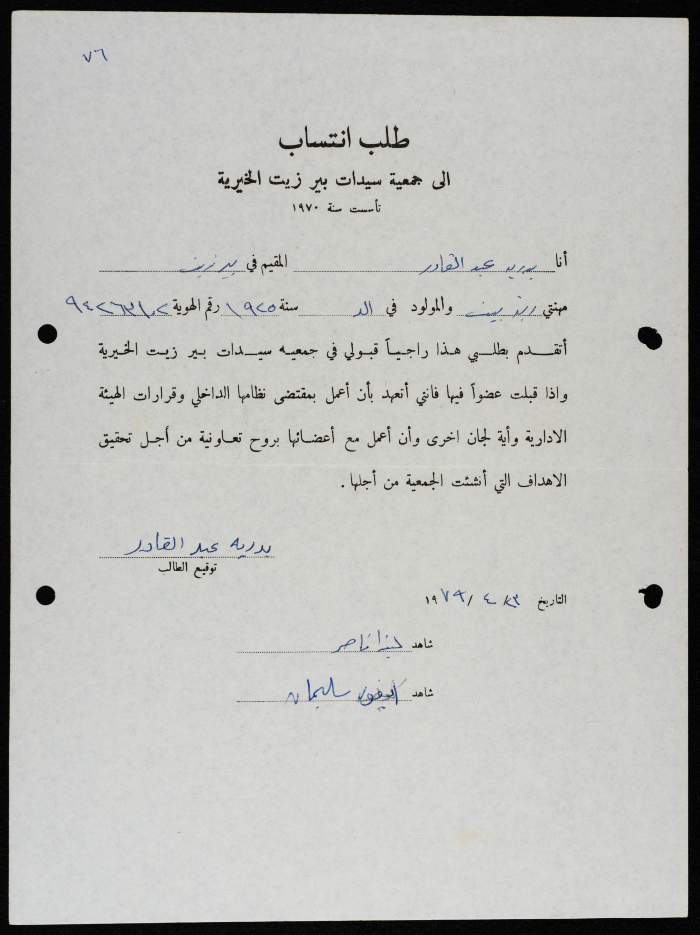 ٧٦
طلب انتساب
الى جمعية سيدات بير زيت الخيرية
تأسست سنة ١٩٧٠
أنا بدريه عبد القادر المقيم في بيرزيت
مهنتي ربة بيت والمولود في اللد سنة ١٩٢٥ رقم الهوية ٩٤٢٦٣١٠٢
أتقدم بطلبي هذا راجياً قبولي في جمعيه سيدات بير زيت الخيرية
واذا قبلت عضواً فيها فانني أتعهد بأن أعمل بمقتضى نظامها الداخلي وقرارات الهيئة
الادارية وأية لجان اخرى وأن أعمل مع أعضائها بروح تعاونية من أجل تحقيق
الاهداف التي أنشئت الجمعية من أجلها .
بدريه عبد القادر
توقيع الطالب
التاريخ ٣/ ٤ / ١٩٧٩
شاهد ناصر
شاهد سليمان